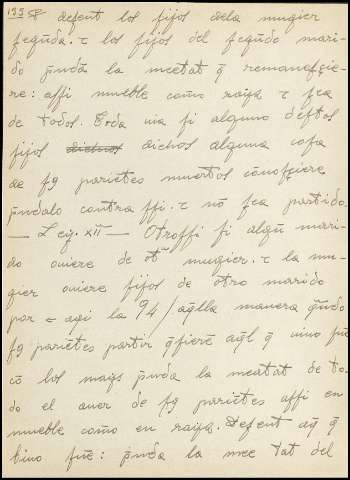 195 defent los fijos dela mugier
segũda. τ los fijos del segũdo mari-
do p̃nda la meetat q̃ remanesçie-
re: assi mueble como raiz τ sea
de todos. Toda uia si alguno destos
fijos dichos alguna cosa
de sꝯ pariẽtes muertos cõnosçiere
p̃ndalo contra ssi. τ nõ sea partido.
— Ley. XII — Otrossi si algũ mari-
do ouiere de ot̃ mugier. τ la mu-
gier ouiere fijos de otro marido
por aqlla manera q̃ndo
sꝯ pariẽtes partir q̃sierẽ aql̃ q̃ uino
cõ los mas p̃nda la meatat de to-
do el auer de sꝯ pariẽtes assi en
mueble como en raiz. Defent aq̃ q̃
uino p̃nda la mee tat del